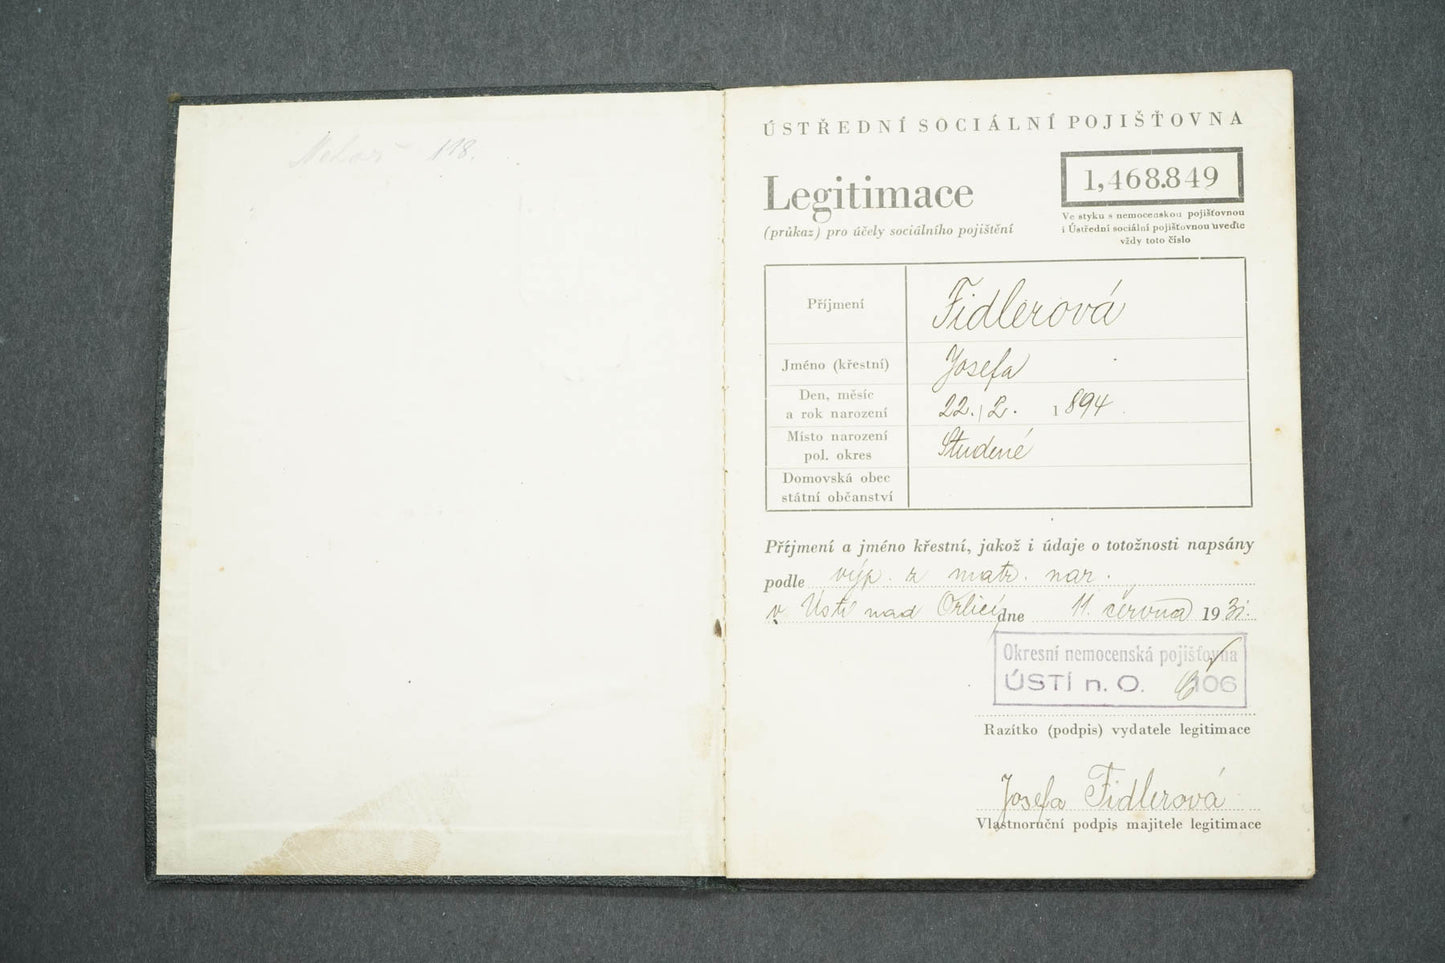 118.
ÚSTŘEDNÍ SOCIÁLNÍ POJIŠŤOVNA
Legitimace
(průkaz) pro účely sociálního pojištění
1,468.849
Ve styku s nemocenskou pojišťovnou
i Ústřední sociální pojišťovnou uveďte
vždy toto číslo
Příjmení
Fidlerová
Jméno (křestní)
Josefa
Den, měsíc
a rok narození
22./2. 1894
Místo narození
pol. okres
Studené
Domovská obec
státní občanství
Příjmení a jméno křestní, jakož i údaje o totožnosti napsány
podle výp. z matr. nar.
v Ústí nad Orlicí dne 11. června 193
Okresní nemocenská pojišťovna
ÚSTÍ n. O. 106
Razítko (podpis) vydatele legitimace
Josefa Fidlerová
Vlastnoruční podpis majitele legitimace